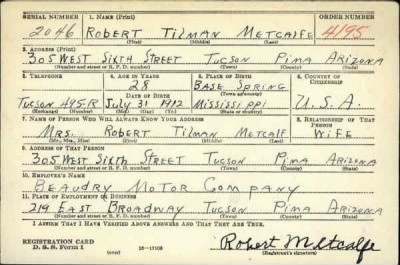 SERIAL NUMBER 1. NAME (Print) ORDER NUMBER
2046 ROBERT TILMAN METCALFE 4195
(First) (Middle) (Last)
2. ADDRESS (Print)
305 WEST SIXTH STREET TUCSON PIMA ARIZONA
(Number and street or R. F. D. number) (Town) (County) (State)
3. TELEPHONE 4. AGE IN YEARS 5. PLACE OF BIRTH 6. COUNTRY OF CITIZENSHIP
28 BASE SPRING
DATE OF BIRTH (Town or county)
TUCSON 495-R JULY 31 1912 MISSISSIPPI U.S.A.
(Exchange) (Number) (Mo.) (Day) (Yr.) (State or country)
7. NAME OF PERSON WHO WILL ALWAYS KNOW YOUR ADDRESS 8. RELATIONSHIP OF THAT PERSON
MRS. ROBERT TILMAN METCALF WIFE
(Mr., Mrs., Miss) (First) (Middle) (Last)
9. ADDRESS OF THAT PERSON
305 WEST SIXTH STREET TUCSON PIMA ARIZONA
(Number and street or R. F. D. number) (Town) (County) (State)
10. EMPLOYER'S NAME
BEAUDRY MOTOR COMPANY
11. PLACE OF EMPLOYMENT OR BUSINESS
219 EAST BROADWAY TUCSON PIMA ARIZONA
(Number and street or R. F. D. number) (Town) (County) (State)
I AFFIRM THAT I HAVE VERIFIED ABOVE ANSWERS AND THAT THEY ARE TRUE.
REGISTRATION CARD
D. S. S. Form 1 (over) Robert Metcalfe
(Registrant's signature)